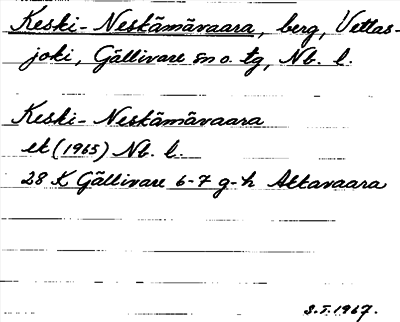 Keski-Neskämävaara, berg, Vettas-
joki, Gällivare sn o. tg, Nb. l.
Keski-Neskämävaara
ek (1965) Nb. l.
28 K Gällivare 6-7 g-h Akkavaara
S.I. 1967.